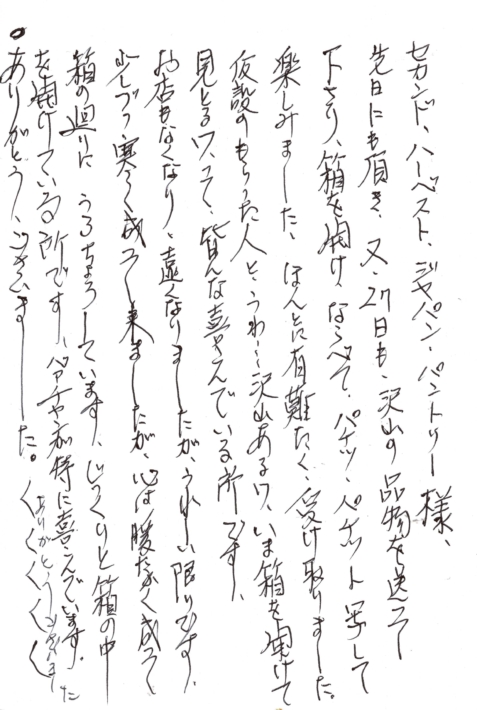 セカンド、ハーベスト、ジャパン・パントリー様、
先日にも頂き、又、27日も、沢山の品物を送って
下さり、箱を開け、ならべて、パチッ、パチット写して
楽しみました、ほんとに有難たく、受け取りました。
仮設のもらった人と、うわー沢山あるワ、いま箱を開けて
見とるワ、って、皆んな喜こんでいる所です、
お店もなくなり、遠くなりましたが、うれしい限りです、
少しづつ、寒く成って来ましたが、心は暖たかく成って
箱の廻りに うろちょろしています、じっくりと箱の中
を開けている所です、バアチャンが特に喜こんでいます。
ありがとう、ございました。
ありがとうございました